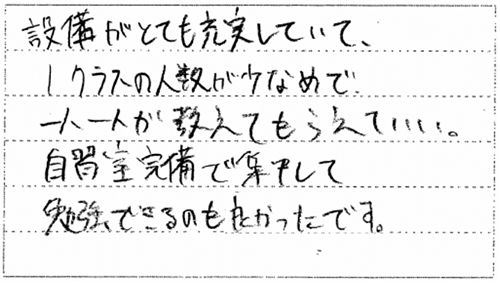 設備がとても充実していて、
1クラスの人数が少なめで
一人一人が教えてもらえていい。
自習室完備で集中して
勉強できるのも良かったです。